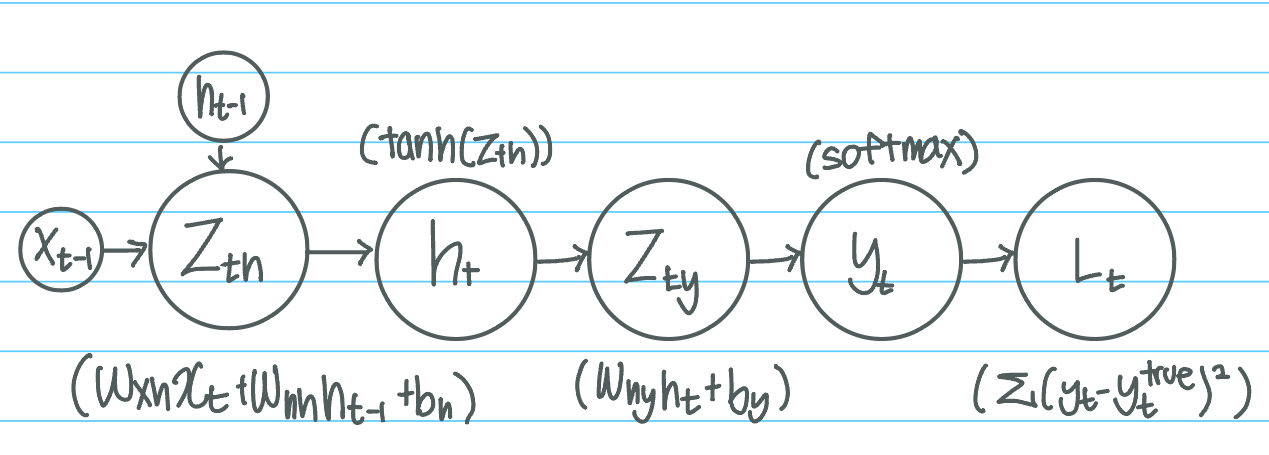 h_{t-1}
(tanh(Z_{th})) (softmax)
x_{t-1} Z_{th} h_t Z_{ty} y_t L_t
(W_{xh}x_t + W_{hh}h_{t-1} + b_h) (W_{hy}h_t + b_y) (Σ(y_t - y_t^{true})²)